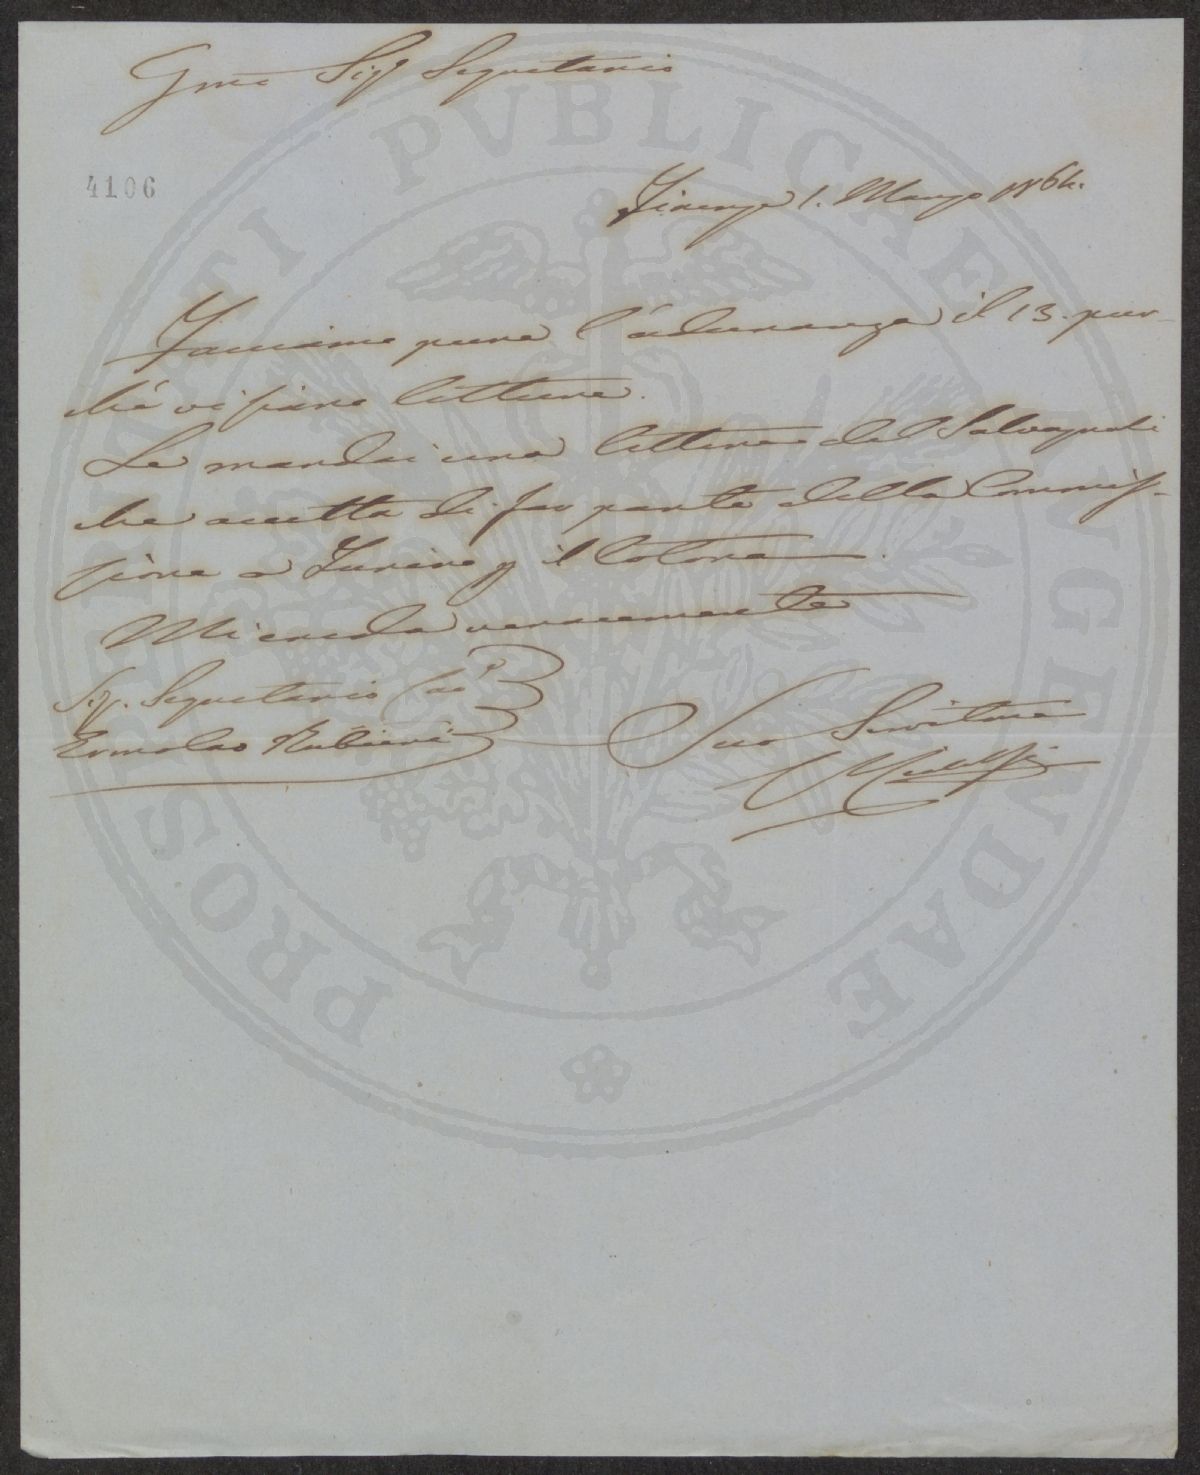 Gmo Sigr Segretario
4106
Firenze 1. Marzo 1864.
Facciamo pure l'adunanza il 13. pur-
chè vi siano letture.
Le mandai una lettera del Salvagnoli
che accetta di far parte della Commis-
sione a Torino p il Cotone.
Mi creda veracemente
Sig. Segretario
Ermolao Rubieri
Suo Servitore
PROSPERITATI PVBLICAE AVGENDAE